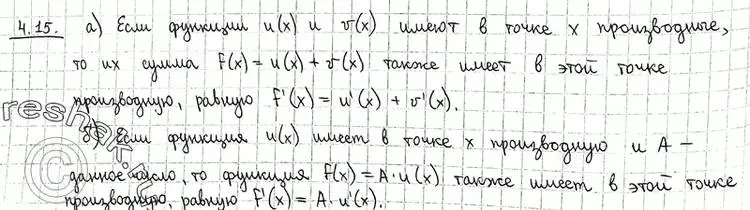 4.15. а) Если функции u(x) и v(x) имеют в точке x производные,
то их сумма f(x) = u(x) + v(x) также имеет в этой точке
производную, равную f'(x) = u'(x) + v'(x).
б) Если функция u(x) имеет в точке x производную и A –
данное число, то функция f(x) = A·u(x) также имеет в этой точке
производную, равную f'(x) = A·u'(x).